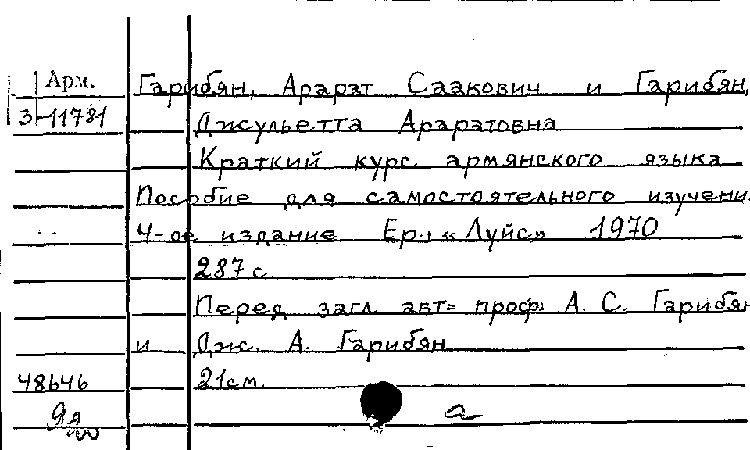 Арм.
3-11781
Гарибян, Арарат Саакович и Гарибян,
Джульетта Араратовна
Краткий курс армянского языка
Пособие для самостоятельного изучени
4-ое издание Ер., «Луйс» 1970
287 с
Перед загл. авт: проф. А. С. Гарибян
и Дж. А. Гарибян
21 см.
48646
а